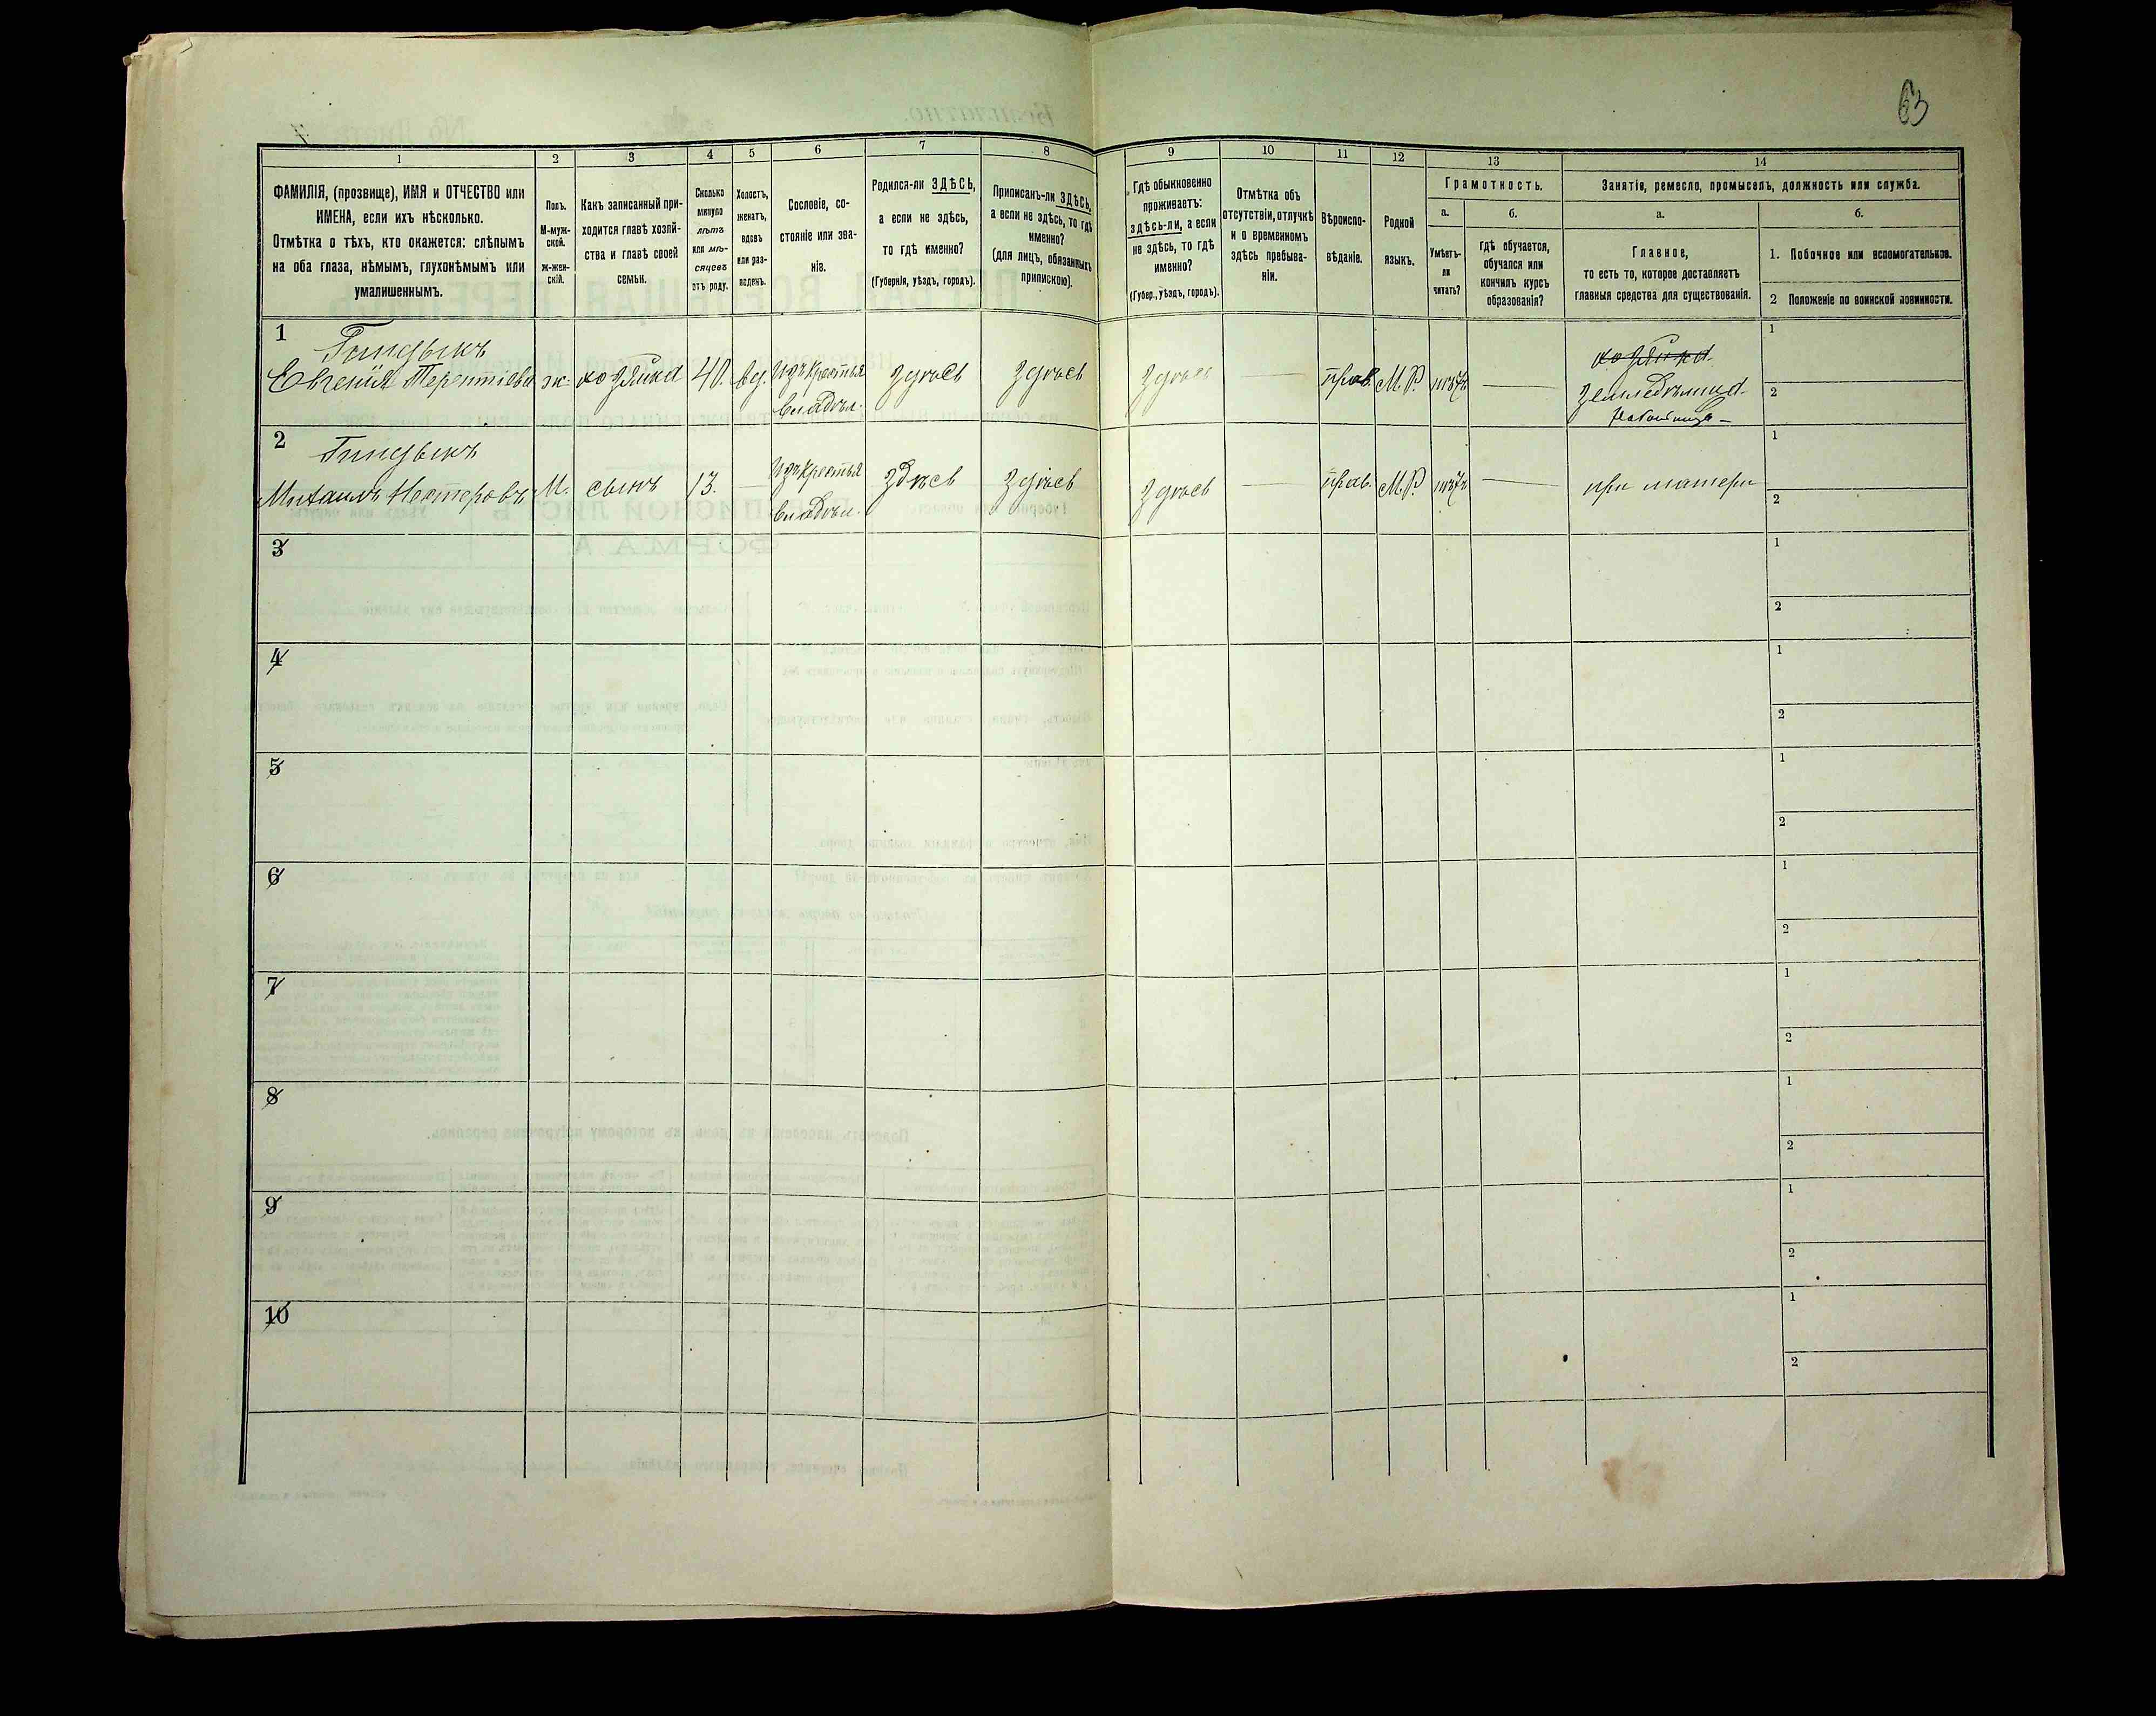 63
1
2
3
4
5
6
7
8
9
10
11
12
13
14
ФАМИЛІЯ, (прозвище), ИМЯ и ОТЧЕСТВО или
ИМЕНА, если ихъ нѣсколько.
Отмѣтка о тѣхъ, кто окажется: слѣпымъ
на оба глаза, нѣмымъ, глухонѣмымъ или
умалишеннымъ.
Полъ.
М-муж-
ской.
ж-жен-
скій.
Какъ записанный при-
ходится главѣ хозяй-
ства и главѣ своей
семьи.
Сколько
минуло
лѣтъ
или мѣ-
сяцевъ
отъ роду.
Холостъ,
женатъ,
вдовъ
или раз-
веденъ.
Сословіе, со-
стояніе или зва-
ніе.
Родился-ли ЗДѢСЬ,
а если не здѣсь,
то гдѣ именно?
(Губернія, уѣздъ, городъ).
Приписанъ-ли ЗДѢСЬ,
а если не здѣсь, то гдѣ
именно?
(для лицъ, обязанныхъ
припискою).
Гдѣ обыкновенно
проживаетъ:
здѣсь-ли, а если
не здѣсь, то гдѣ
именно?
(Губер., уѣздъ, городъ).
Отмѣтка объ
отсутствіи, отлучкѣ
и о временномъ
здѣсь пребыва-
ніи.
Вѣроиспо-
вѣданіе.
Родной
языкъ.
Грамотность.
а.
Умѣетъ-
ли
читать?
б.
гдѣ обучается,
обучался или
кончилъ курсъ
образованія?
Занятіе, ремесло, промыселъ, должность или служба.
а.
Главное,
то есть то, которое доставляетъ
главныя средства для существованія.
б.
1. Побочное или вспомогательное.
2 Положеніе по воинской повинности.
1
Евгенія Терентіева ж. хозяйка 40. вд. Изъ крестья здѣсь здѣсь здѣсь — прав. М.Р. нѣтъ —
владѣл.
хозяйка
земледѣлица
1
2
2
Михаилъ Нестеровъ М. сынъ 13. — Изъ крестья здѣсь здѣсь здѣсь — прав. М.Р. нѣтъ — при матери
владѣл.
1
2
3
1
2
4
1
2
5
1
2
6
1
2
7
1
2
8
1
2
9
1
2
10
1
2